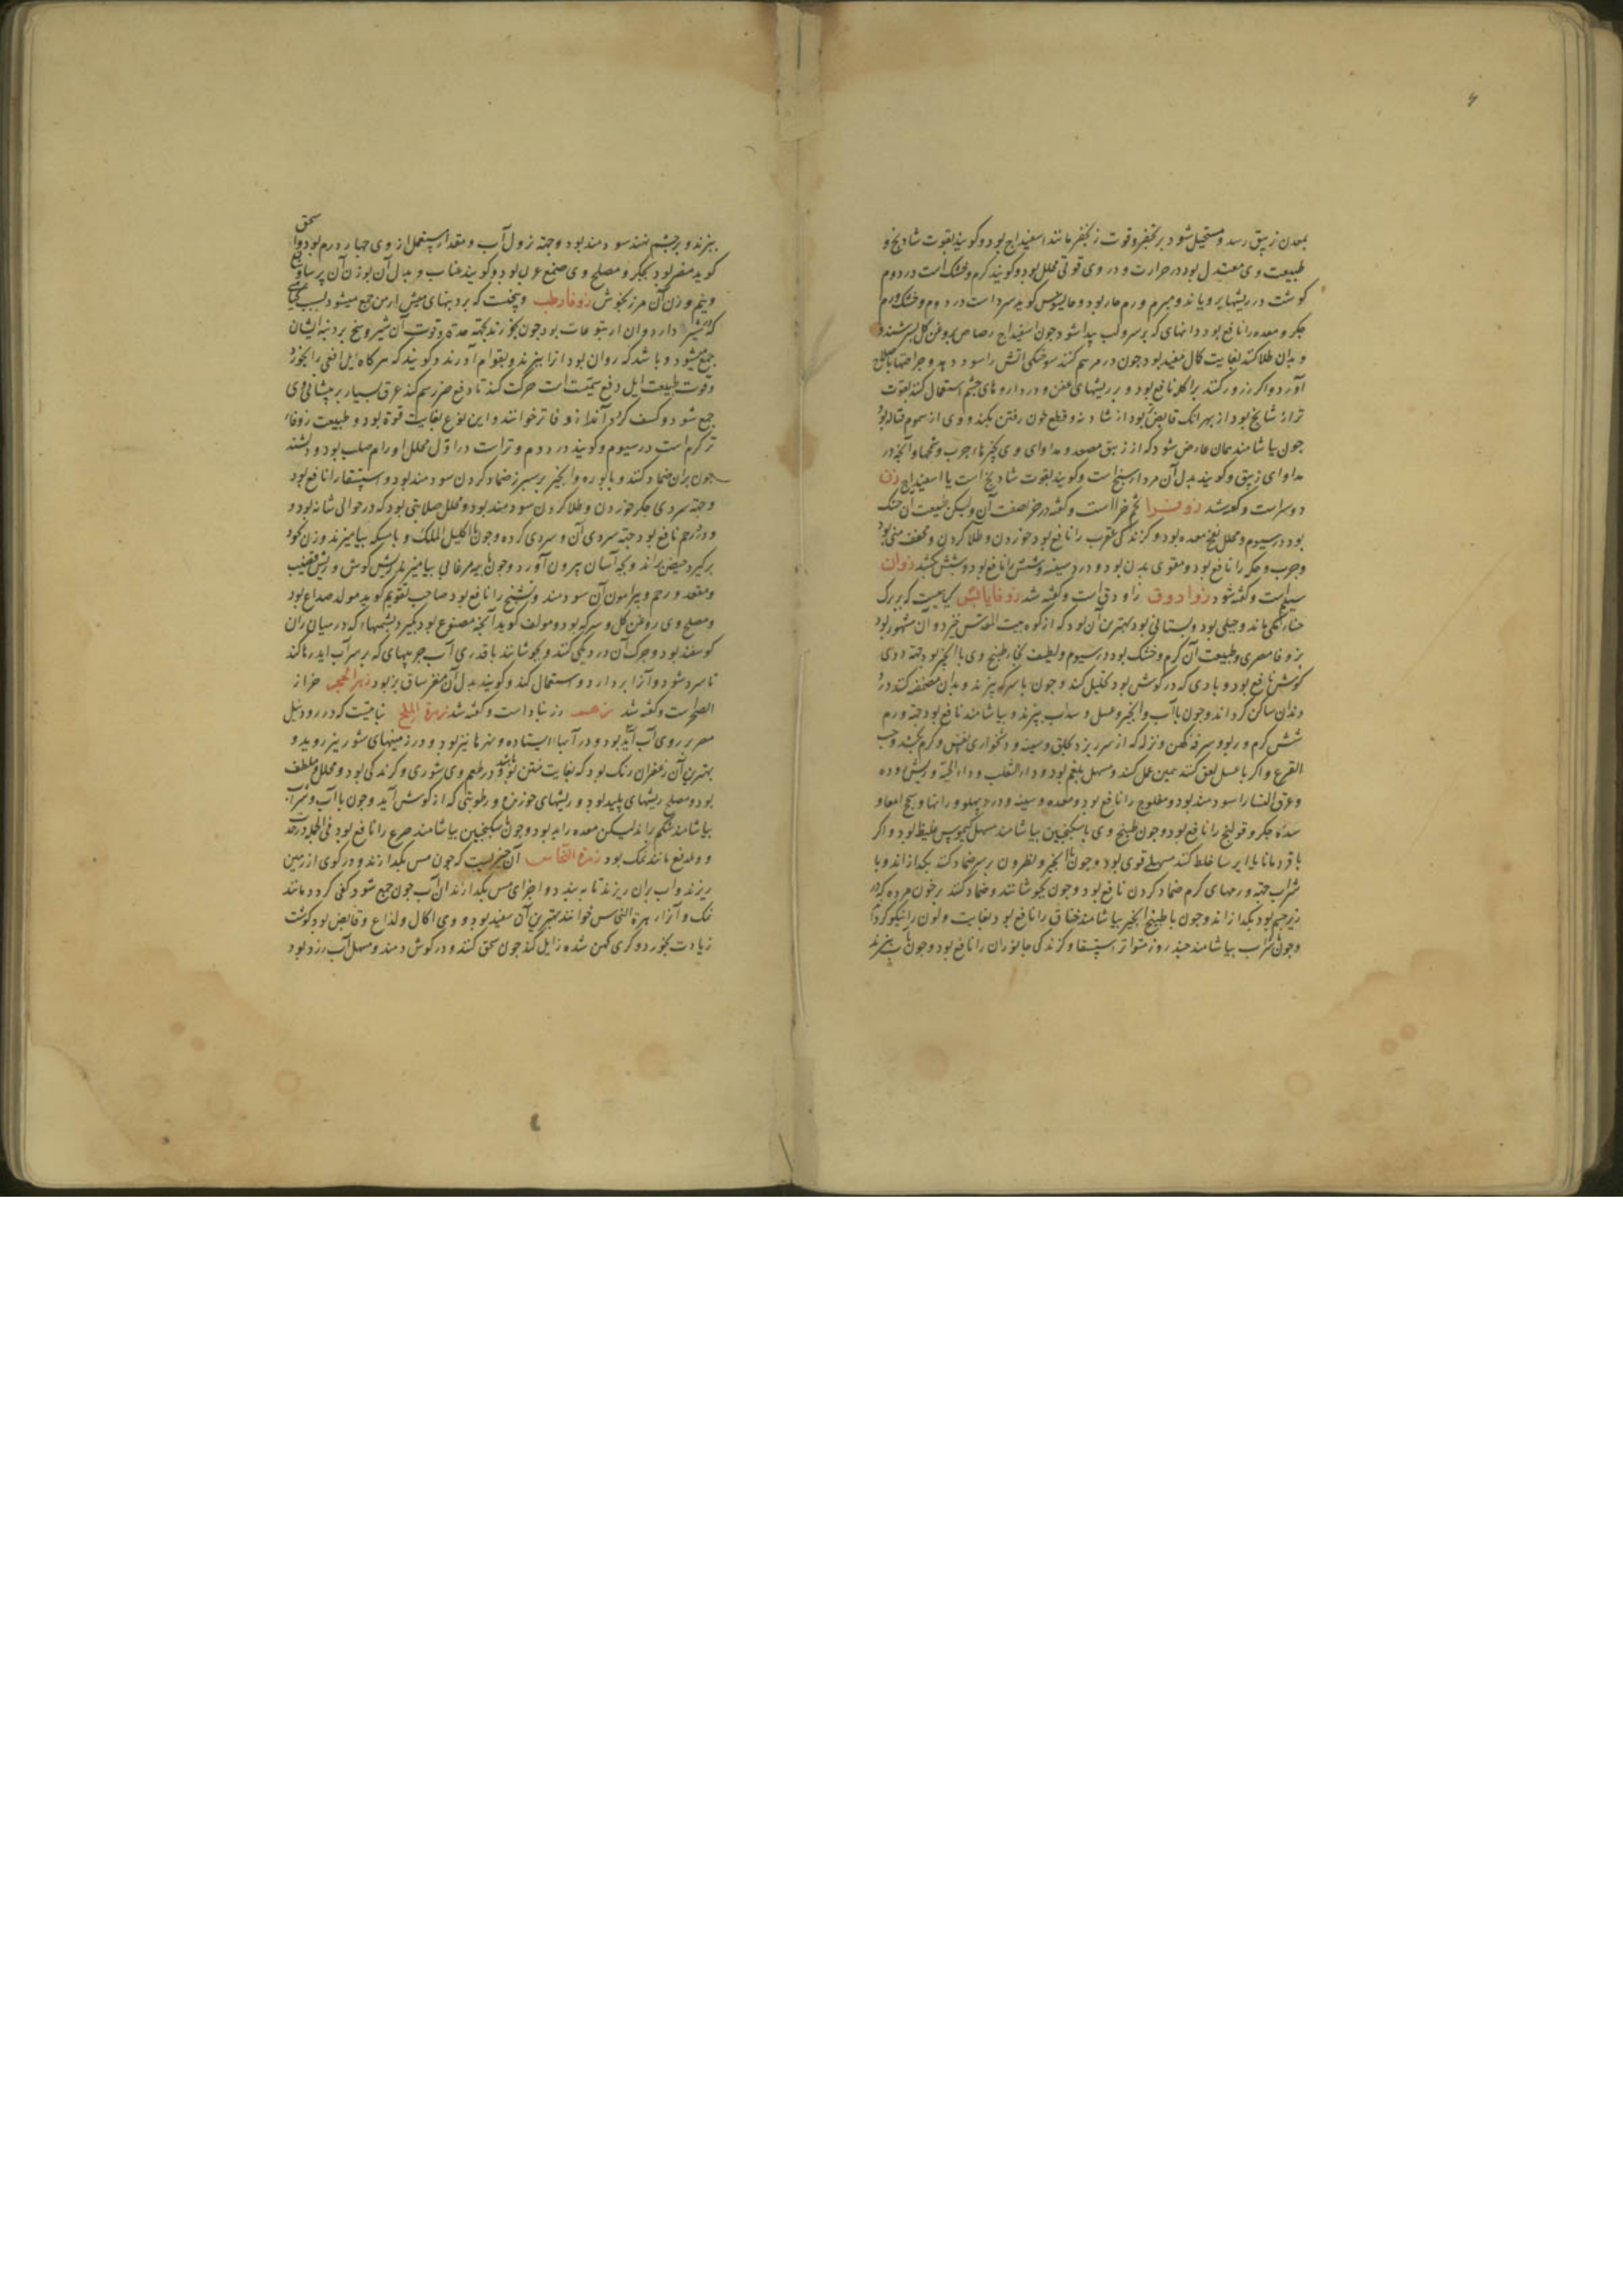 بمعدن زیبق رسد و مستحیل شود بزنجفر و قوت زنجفر مانند اسفیداج بود و گویند بقوت شادنج و
طبیعت وی معتدل بود در حرارت و در وی قوتی محلل بود و گویند گرم و خشک است در دوم
گوشت در ریشها برویاند و مبرم ورم حار بود و جالینوس گوید سرد است در دوم و خشک ورم
جگر و معده را نافع بود و دانهای که بر سر و لب پیدا شود چون اسفیداج رصاص بروغن گل بسرشند و
و بدان طلا کنند بغایت کمال مفید بود چون در مرهم کنند سوختگی آتش را سود دهد و جراحتها باصلاح
آورد و اگر زرور کنند براکله نافع بود و بر ریشهای عفن و در داروهای چشم استعمال کنند بقوت
تر از شادنج بود از بهر آنک قابض بود از شادنه و قطع خون رفتن بکند و وی از سموم قتاله بود
چون بیاشامند همان عارض شود که از زیبق مصعد و مداوای وی بچیزهاء چرب و تخمها و آنچه در
مداوای زیبق و گویند بدل آن مرداسنج است و گویند بقوت شادنج است یا اسفیداج زن
دوسر است و گفته شد زوفرا تخم خزا است و گفته در خز صفت آن ولیکن طبیعت آن خشک
بود در سیوم و محلل نفخ معده بود و گزندگی عقرب را نافع بود خوردن و طلا کردن و مجفف منی بود
و جرب و حکه را نافع بود و مقوی بدن بود و درد سینه و شش را نافع بود و شپش بکشد زوان
سیلم است و گفته شود زوادوق زاودق است و گفته شد زوفا یابس گیاهیست که ببرگ
حنا رنگی ماند و جبلی بود و بستانی بود بهترین آن بود که از کوه بیت المقدس خیزد و آن مشهور بود
بزوفا مصری و طبیعت آن گرم و خشک بود در سیوم و لطیف بخار طبیخ وی با انجیر بود جهة دوی
گوش نافع بود و بادی که در گوش بود تحلیل کند و چون با سرکه بپزند و بدان مضمضه کنند درد
دندان ساکن گرداند و چون با آب و انجیر و عسل و سداب بپزند و بیاشامند نافع بود جهة ورم
شش گرم و ربو و سرفه کهن و نزله که از سر ریزد بحلق و سینه و دشخواری نفس و کرم بکشد و حب
القرع و اگر با عسل لعق کنند همین عمل کند و مسهل بلغم بود و داء الثعلب و داء الحیة و ریش روده
و عرق النسا را سودمند بود و مفلوج را نافع بود و معده و سینه و درد پهلو و رانها و سحج امعا و
سده جگر و قولنج را نافع بود و چون طبیخ وی با سکنجبین بیاشامند مسهل کیموس غلیظ بود و اگر
با قردمانا یا ایرسا خلط کنند مسهلی قوی بود و چون با انجیر و نطرون بر سپرز ضماد کنند بگدازاند و با
شراب جهة ورمهای گرم ضماد کردن نافع بود و چون بجوشانند و ضماد کنند بر خون مرده که در
زیر چشم بود بگدازاند و چون با طبیخ انجیر بیاشامند خناق را نافع بود بغایت و لون را نیکو گرداند
و چون با شراب بیاشامند چند روز متواتر استسقا و گزندگی جانوران را نافع بود و چون بپزند
بپزند و بر چشم نهند سودمند بود و جهة نزول آب و مقدار مستعمل از وی چهار درم بود و اسحق
گوید مضر بود بجگر و مصلح وی صمغ عربی بود و گویند عناب و بدل آن بوزن آن پرسیاوشان
و نیم وزن آن مرزنجوش زوفا رطب وسخیست که بر دنبهای میش ارمن جمع میشود بسبب گیاهی
که شیر دارد و آن از یتوعات بود چون بخورند بجهة حدة و قوت آن شیر وسخ بر دنبه ایشان
جمع میشود و باشد که روان بود آنرا بپزند و بقوام آورند و گویند که هرگاه ایل افعی را بخورد
و قوت طبیعت ایل دفع سمیت است حرکت کند تا دفع ضرر سم کند عرق بسیار بر پیشانی وی
جمع شود و کسف گردد آنرا زوفا تر خوانند و این نوع بغایت قوة بود و طبیعت زوفاء
تر گرم است در سیوم و گویند در دوم و تر است در اول محلل اورام صلب بود و دشبد
چون بر آن ضماد کنند و با بوره و انجیر بر سپرز ضماد کردن سودمند بود و استسقا را نافع بود
و جهة سردی جگر خوردن و طلا کردن سودمند بود و محلل صلابتی بود که در حوالی شانه بود و
و در رحم نافع بود جهة سردی آن و سردی گرده و چون با اکلیل الملک و با مسکه بیامیزند و زن بخود
برگیرد حیض براند و بچه آسان بیرون آورد و چون با پیه مرغابی بیامیزند ریش گوش و ریش قضیب
و مقعد و رحم و پیرامون آن سودمند و تشنج را نافع بود صاحب تقویم گوید مولد صداع بود
و مصلح وی روغن گل و سرکه بود و مولف گوید آنچه مصنوع بود بگیرد پشمهاء که در میان ران
گوسفند بود و چرک آن در دیگی کنند و بجوشانند با قدری آب چربیهای که بر سر آب آید رها کند
تا سرد شود و آنرا بردارد و استعمال کند و گویند بدل آن مغز ساق بز بود زهر الحجر حزاز
الصخر است و گفته شد زهه رز نباد است و گفته شد زهرة الملح نباتیست که در رود نیل
مصر بر روی آب آید بود و در آبها ایستاده و نهرها نیز بود و در زمینهای شور نیز روید و
بهترین آن زعفران رنگ بود که بغایت منتن بود و در طعم وی شوری و گزندگی بود و محلل و ملطف
بود و مصلح ریشهای پلید بود و ریشهای خورنده و رطوبتی که از گوش آید و چون با آب و شراب
بیاشامند شکم را براند لیکن معده را بد بود و چون با سکنجبین بیاشامند صرع را نافع بود فی الجمله در حدة
و ولذع مانند نمک بود زهرة النحاس آن چیزیست که چون مس بگدازند و در گوی از زمین
ریزند و آب بر آن ریزند تا به بندد و اجزای مس بگدازند آن آب چون جمع شود کفی گردد مانند
نمک و آنرا زهرة النحاس خوانند بهترین آن سفید بود و وی اکال و لذاع و قابض بود گوشت
زیادت بخورد و کری کهن شده زایل کند چون سحق کنند و در گوش دمند و مسهل آب زرد بود